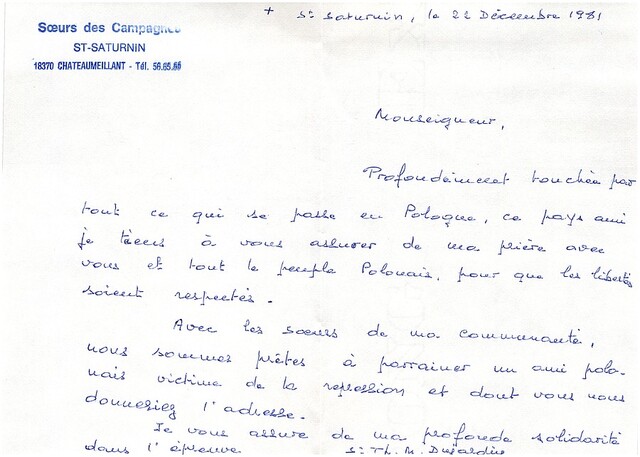 Sœurs des Campagnes
ST-SATURNIN
18370 CHATEAUMEILLANT - Tél. 56.65.66
+ St Saturnin, le 22 Décembre 1981
Monseigneur,
Profondément touchée par
tout ce qui se passe en Pologne, ce pays ami
je tiens à vous assurer de ma prière avec
vous et tout le peuple Polonais, pour que les libertés
soient respectés.
Avec les sœurs de ma communauté,
nous sommes prêtes à parrainer un ami polo-
nais victime de la répression et dont vous nous
donneriez l'adresse.
Je vous assure de ma profonde solidarité
dans l'épreuve. Sr Th. M. Dujardin